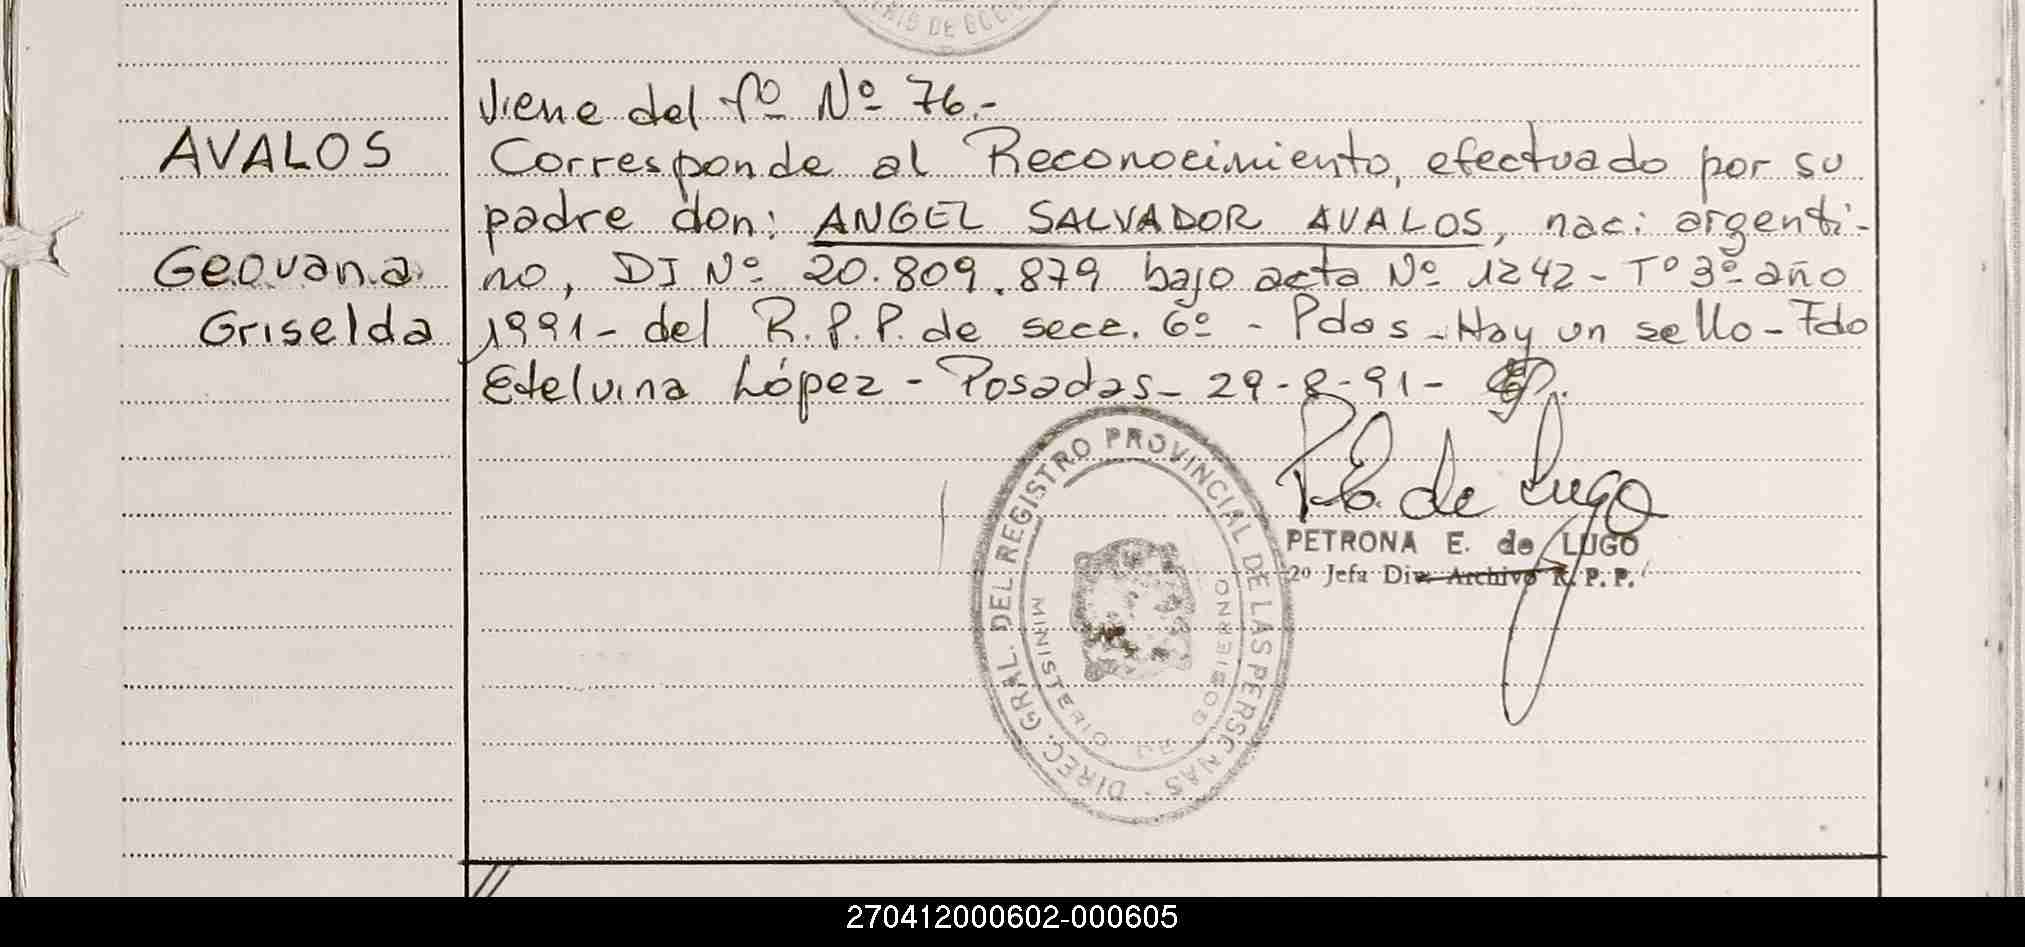 RIO DE GOBIE
Viene del fº Nº 76.-
AVALOS
Corresponde al Reconocimiento, efectuado por su
padre don: ANGEL SALVADOR AVALOS, nac: argenti-
Geovana
no, DI Nº 20.809.879 bajo acta Nº 1242 - Tº 3º año
Griselda
1991 - del R.P.P. de secc. 6º - Pdas - Hay un sello - Fdo
Etelvina López - Posadas - 29-8-91 -
P.E. de Lugo
PETRONA E. de LUGO
2º Jefa Div. Archivo R.P.P.
DIREC. GRAL. DEL REGISTRO PROVINCIAL DE LAS PERSONAS
MINISTERIO DE GOBIERNO
270412000602-000605